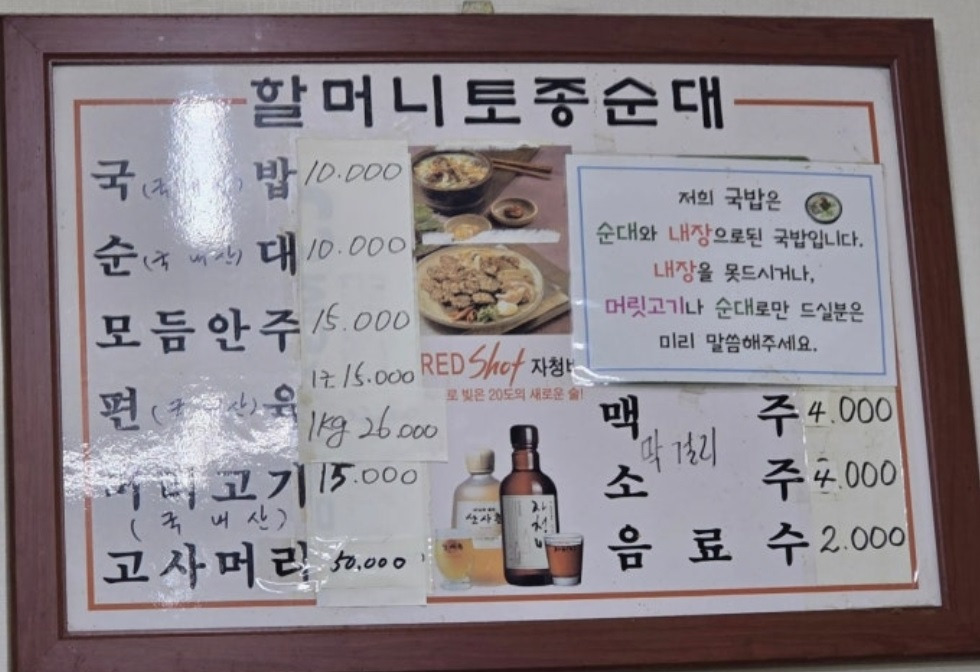 할머니토종순대
국(국내산)밥 10.000
순(국내산)대 10.000
모듬안주 15.000
편(국내산)육 15.000
1kg 26.000
머리고기 15.000
(국내산)
고사머리 50,000
RED Shot 자청비
로 빚은 20도의 새로운 술!
저희 국밥은
순대와 내장으로된 국밥입니다.
내장을 못드시거나,
머릿고기나 순대로만 드실분은
미리 말씀해주세요.
맥주 4.000
막걸리
소주 4.000
음료수 2.000
산사춘
자청비